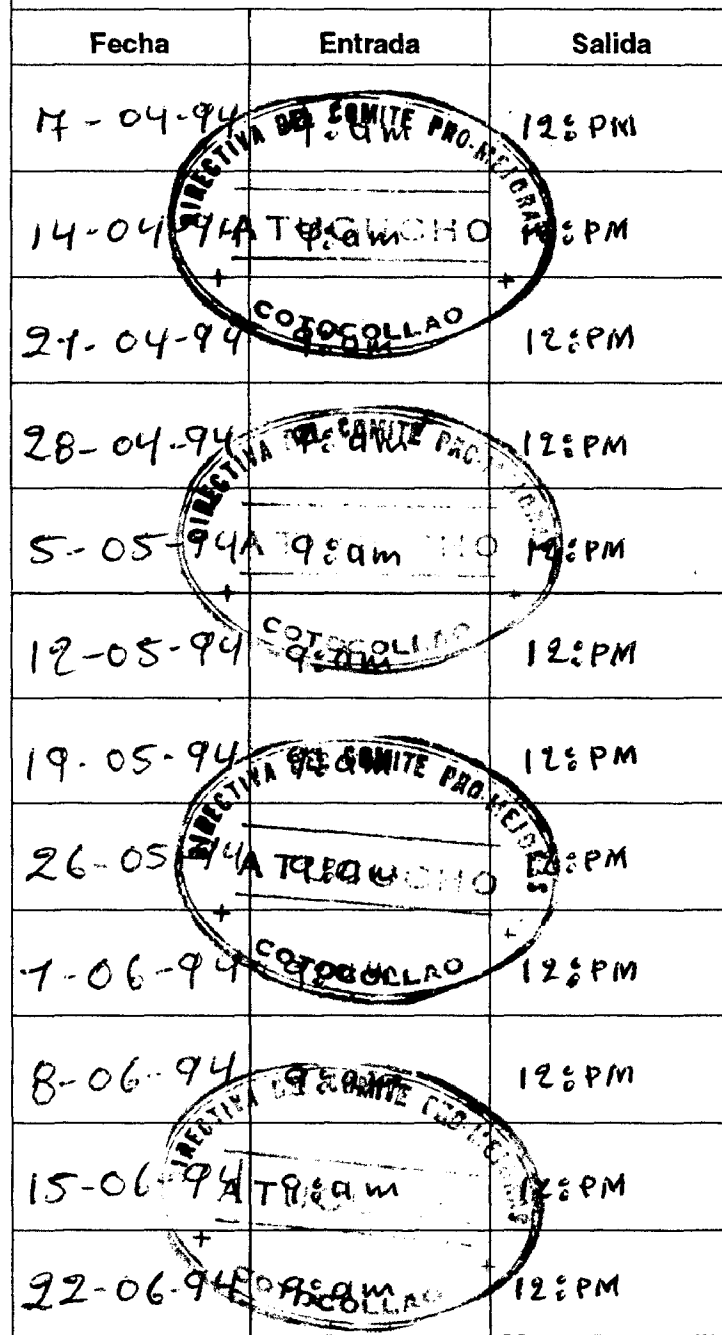 Fecha Entrada Salida
7-04-94 9:am 12:PM
14-04-94 9:am 12:PM
21-04-94 9:am 12:PM
28-04-94 9:am 12:PM
5-05-94 9:am 12:PM
12-05-94 9:am 12:PM
19-05-94 9:am 12:PM
26-05-94 9:am 12:PM
1-06-94 9:am 12:PM
8-06-94 9:am 12:PM
15-06-94 9:am 12:PM
22-06-94 9:am 12:PM
DIRECTIVA DEL COMITE PRO-MEJORAS
ATUCUCHO
COTOCOLLAO
DIRECTIVA DEL COMITE PRO-MEJORAS
ATUCUCHO
COTOCOLLAO
DIRECTIVA DEL COMITE PRO-MEJORAS
ATUCUCHO
COTOCOLLAO
DIRECTIVA DEL COMITE PRO-MEJORAS
COTOCOLLAO